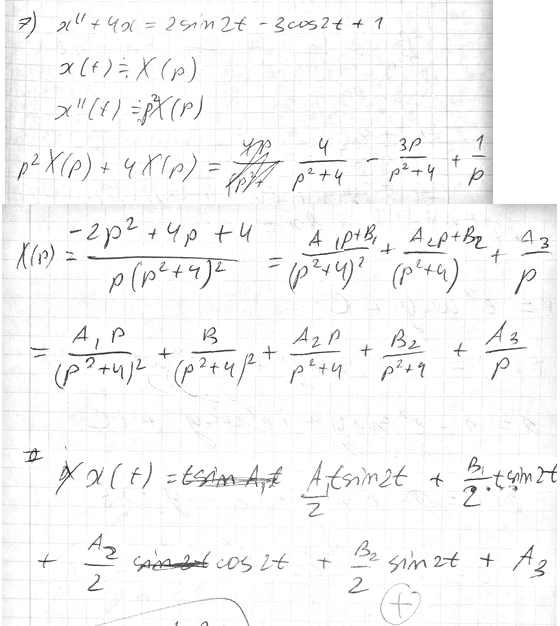 7) x'' + 4x = 2sin2t - 3cos2t + 1
x(t) ≓ X(p)
x''(t) ≓ p²X(p)
p² X(p) + 4 X(p) = 4/(p²+4) - 3p/(p²+4) + 1/p
X(p) = (-2p² + 4p + 4)/(p(p²+4)²) = (A₁p+B₁)/(p²+4)² + (A₂p+B₂)/(p²+4) + A₃/p
= A₁p/(p²+4)² + B/(p²+4)² + A₂p/(p²+4) + B₂/(p²+4) + A₃/p
x(t) = A₁/2 tsin2t + B₁/2 tsin2t
+ A₂/2 cos2t + B₂/2 sin2t + A₃
+